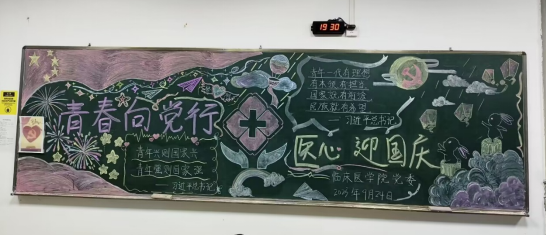 19 30
青春向党行
青年兴则国家兴
青年强则国家强
——习近平总书记
青年一代有理想
有本领有担当
国家就有前途
民族就有希望
——习近平总书记
医心迎国庆
临床医学院党委
2025年9月24日